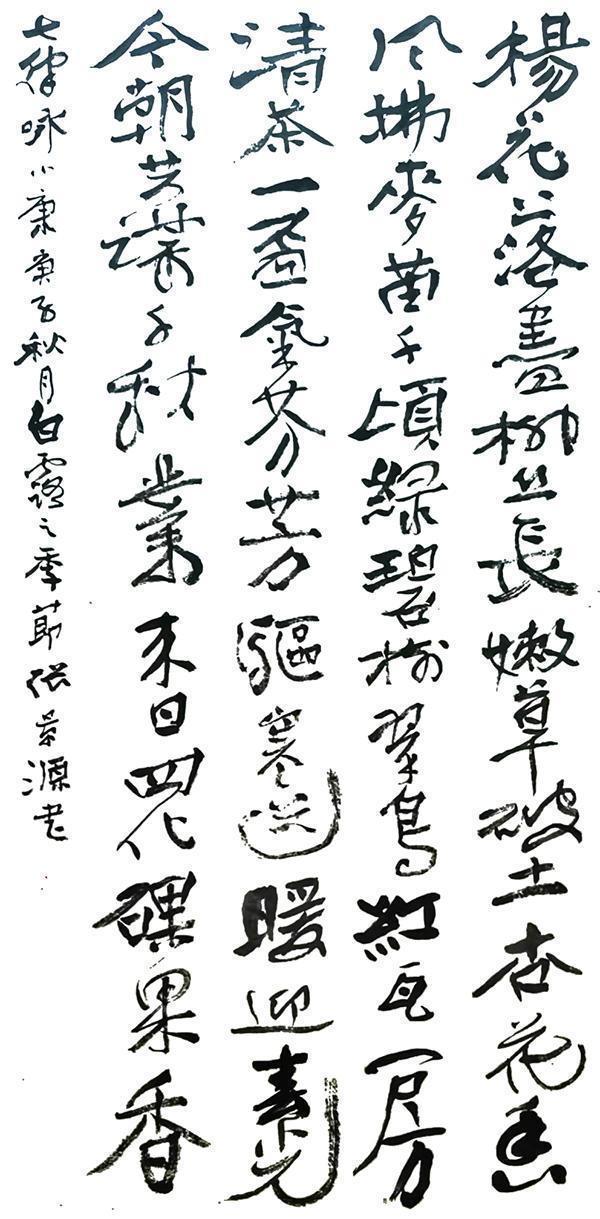 楊花落盡柳丝長嫩草破土杏花香
风拂麥苗千頃緑碧树翠鳥紅瓦房
清茶一盃氣芬芳驅寒送暖迎春光
今朝千秋業来日四化碩果香
七律咏小康庚子秋月白露之季節张景源书